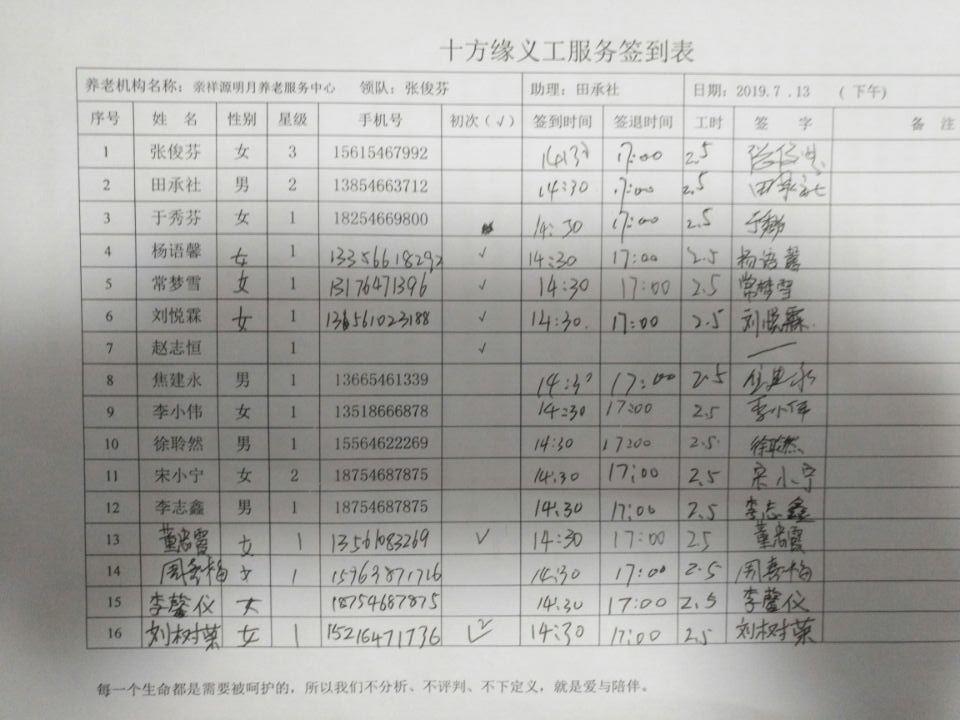 十方缘义工服务签到表
养老机构名称：亲祥源明月养老服务中心 领队：张俊芬 助理：田承社 日期：2019.7.13 （下午）
序号 姓 名 性别 星级 手机号 初次（√） 签到时间 签退时间 工时 签 字 备 注
1 张俊芬 女 3 15615467992 17:00 2.5 张俊芬
2 田承社 男 2 13854663712 14:30 17:00 2.5 田承社
3 于秀芬 女 1 18254669800 14:30 17:00 2.5
4 杨语馨 女 1 13356618292 √ 14:30 17:00 2.5 杨语馨
5 常梦雪 女 1 13176471396 √ 14:30 17:00 2.5 常梦雪
6 刘悦霖 女 1 √ 14:30. 17:00 2.5 刘悦霖.
7 赵志恒 1 √ —
8 焦建永 男 1 13665461339 14:30 17:00 2.5 焦建永
9 李小伟 女 1 13518666878 14:30 17:00 2.5 李小伟
10 徐聆然 男 1 15564622269 14:30 17:00 2.5 徐聆然
11 宋小宁 女 2 18754687875 14:30 17:00 2.5 宋小宁
12 李志鑫 男 1 18754687875 14:30 17:00 2.5 李志鑫
13 女 1 13561083269 √ 14:30 17:00 2.5
14 女 1 15963871716 14:30 17:00 2.5
15 李馨仪 女 18754687875 14:30 17:00 2.5 李馨仪
16 刘树菜 女 1 15216471736 √ 14:30 17:00 2.5 刘树菜
每一个生命都是需要被呵护的，所以我们不分析、不评判、不下定义，就是爱与陪伴。